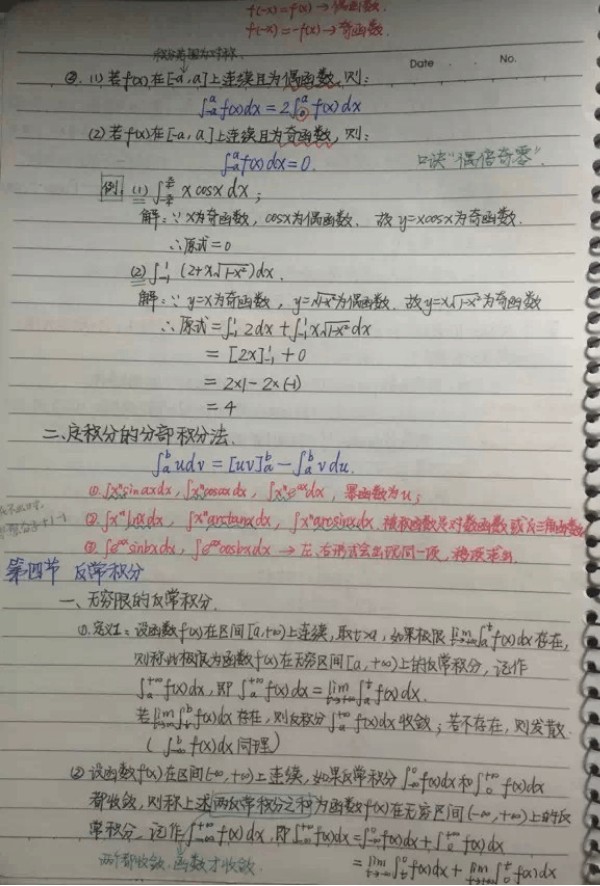 f(-x)=f(x)→偶函数.
f(-x)=-f(x)→奇函数.
Date No.
②.(1)若f(x)在[-a,a]上连续且为偶函数,则:
∫_{-a}^{a}f(x)dx=2∫_{0}^{a}f(x)dx
(2)若f(x)在[-a,a]上连续且为奇函数,则:
∫_{-a}^{a}f(x)dx=0.
口诀"偶倍奇零".
例.(1)∫ x cosx dx;
解:∵x为奇函数,cosx为偶函数.故y=xcosx为奇函数.
∴原式=0
(2)∫_{-1}^{1}(2+x√1-x²)dx.
解:∵y=x为奇函数,y=√1-x²为偶函数.故y=x√1-x²为奇函数
∴原式=∫_{-1}^{1}2dx+∫_{-1}^{1}x√1-x²dx
=[2x]_{-1}^{1}+0
=2×1-2×(-1)
=4
二、定积分的分部积分法.
∫_{a}^{b}udv=[uv]_{a}^{b}-∫_{a}^{b}vdu.
①.∫xⁿsinaxdx,∫xⁿcosaxdx,∫xⁿe^{ax}dx,幂函数为u;
②.∫xⁿlnxdx,∫xⁿarctanxdx,∫xⁿarcsinxdx.被积函数是对数函数或反三角函数
③.∫e^{ax}sinbxdx,∫e^{ax}cosbxdx→左、右形式会出现同一项,移项求出.
第四节 反常积分
一、无穷限的反常积分.
①.定义1:设函数f(x)在区间[a,+∞)上连续,取t>a,如果极限lim_{t→+∞}∫_{a}^{t}f(x)dx存在,
则称此极限为函数f(x)在无穷区间[a,+∞)上的反常积分,记作
∫_{a}^{+∞}f(x)dx,即∫_{a}^{+∞}f(x)dx=lim_{t→+∞}∫_{a}^{t}f(x)dx.
若lim f(x)dx存在,则反积分∫_{a}^{+∞}f(x)dx收敛;若不存在,则发散.
(∫_{-∞}^{b}f(x)dx同理)
②设函数f(x)在区间(-∞,+∞)上连续,如果反常积分∫_{-∞}^{0}f(x)dx和∫_{0}^{+∞}f(x)dx
都收敛,则称上述两反常积分之和为函数f(x)在无穷区间(-∞,+∞)上的反
常积分,记作∫_{-∞}^{+∞}f(x)dx,即∫_{-∞}^{+∞}f(x)dx=∫_{-∞}^{0}f(x)dx+∫_{0}^{+∞}f(x)dx
两个都收敛,函数才收敛.
=lim_{t→-∞}∫_{t}^{0}f(x)dx+lim_{t→+∞}∫_{0}^{t}f(x)dx